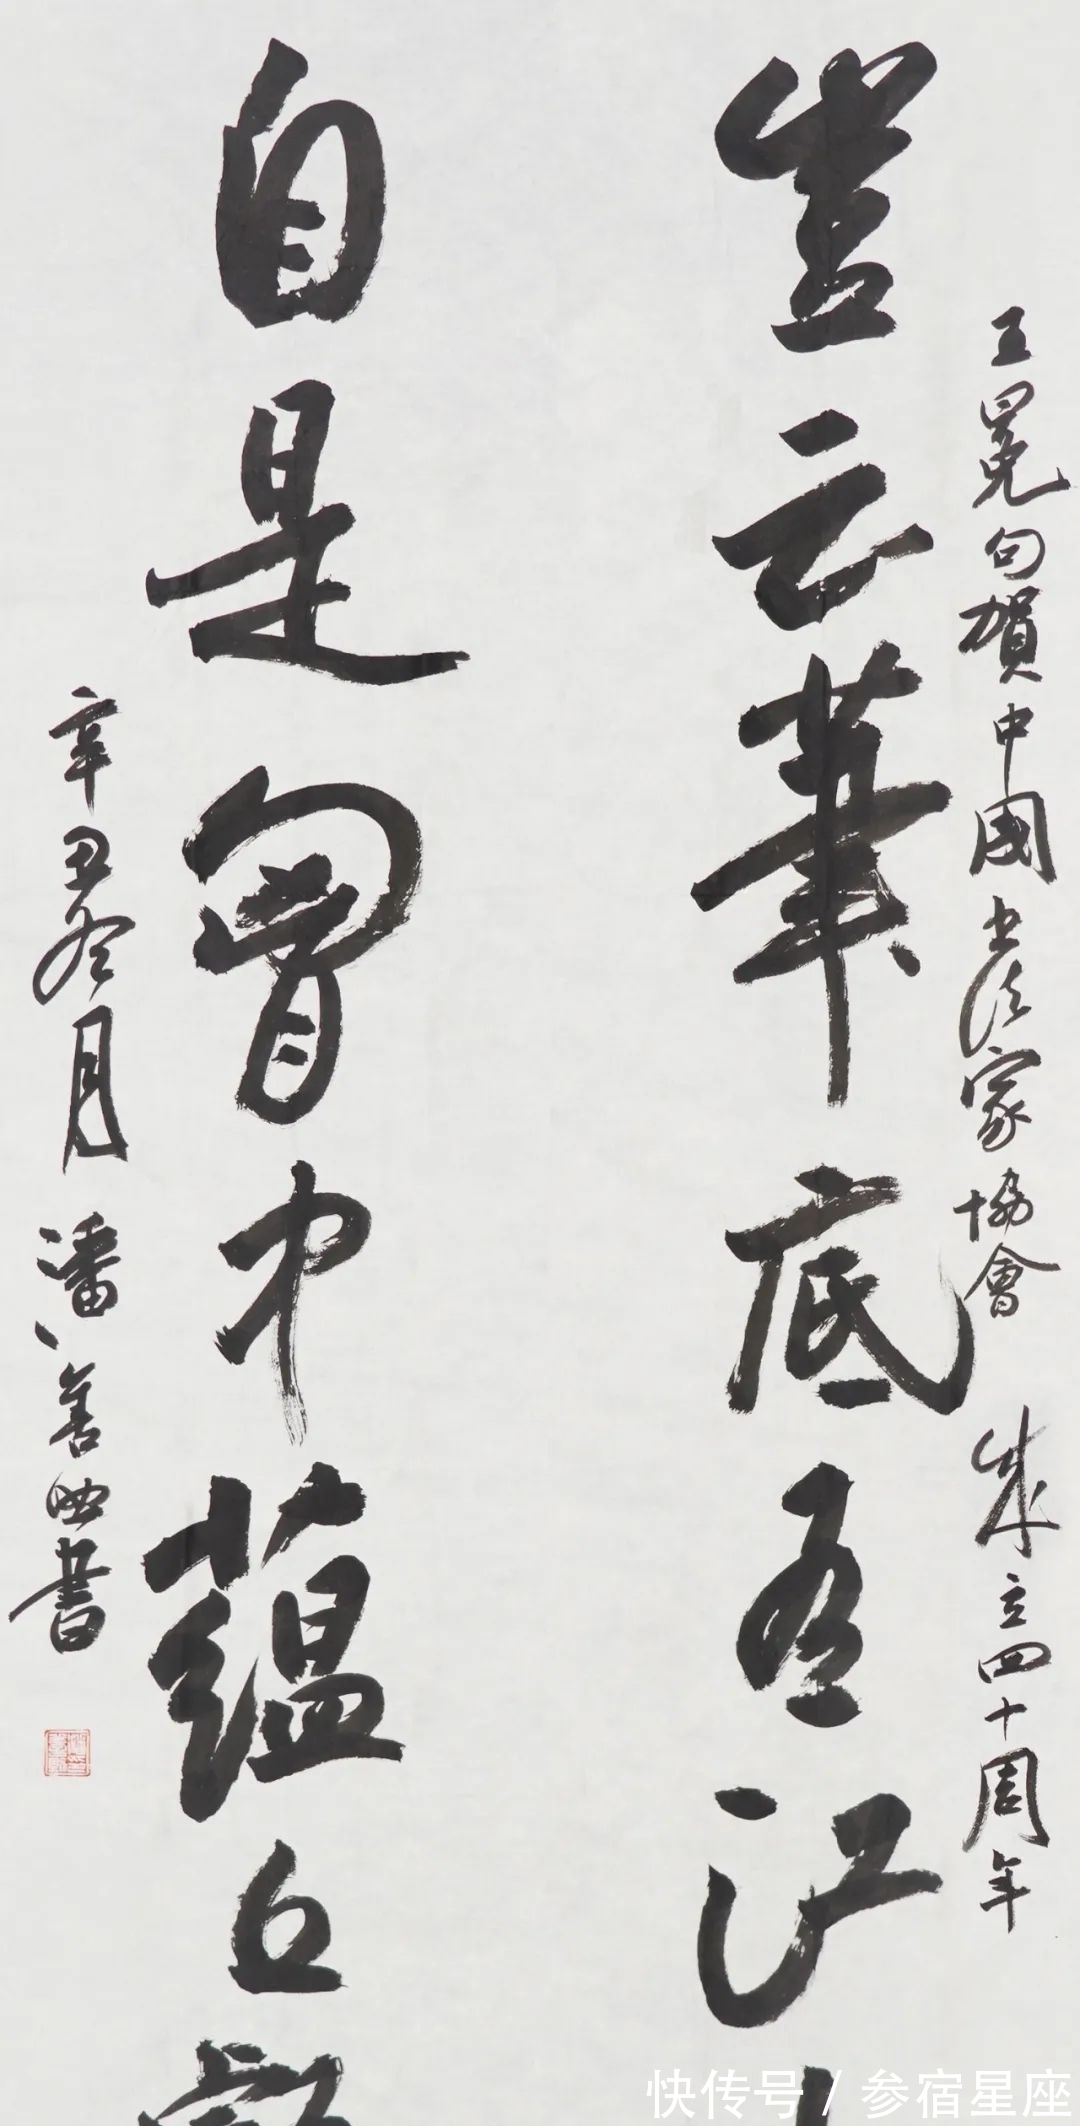 王冕句賀中國书法家協會成立四十周年
豈云筆底有江
自是胷中蘊丘
辛丑冬月潘善助書
快传号 / 参宿星座